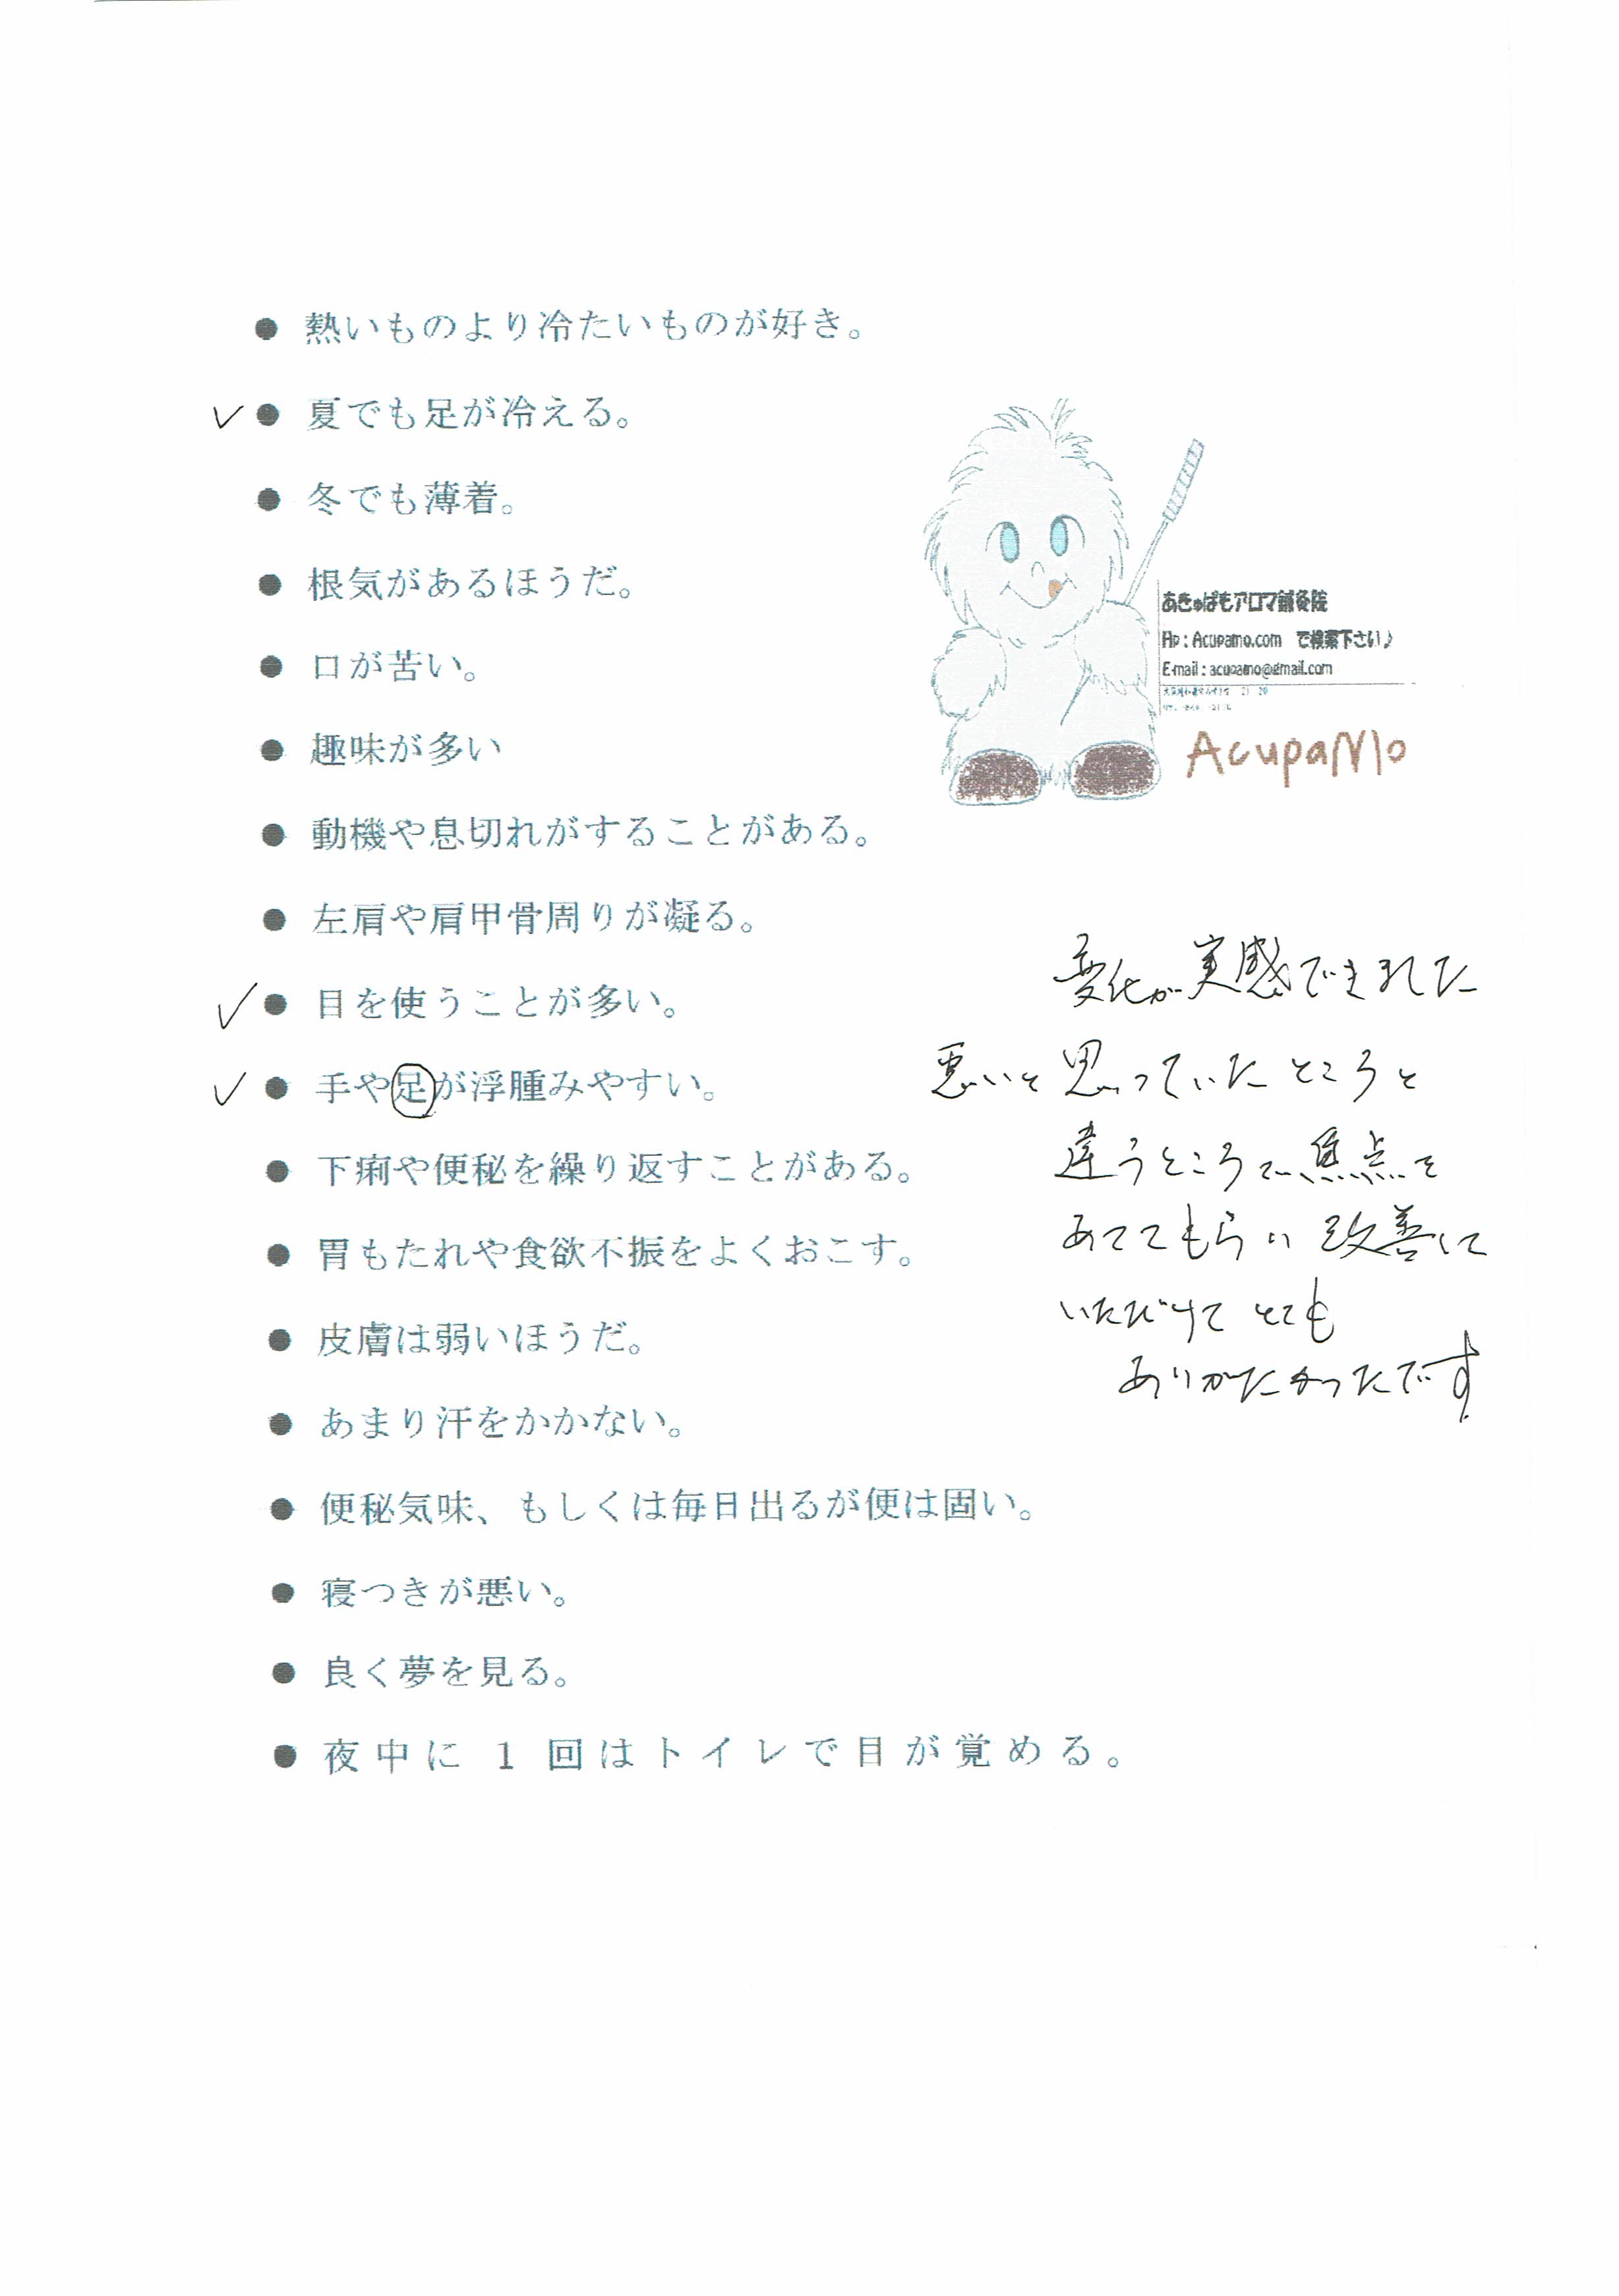 ● 熱いものより冷たいものが好き。
✓ ● 夏でも足が冷える。
● 冬でも薄着。
● 根気があるほうだ。
● 口が苦い。
● 趣味が多い
● 動機や息切れがすることがある。
● 左肩や肩甲骨周りが凝る。
✓ ● 目を使うことが多い。
✓ ● 手や足が浮腫みやすい。
● 下痢や便秘を繰り返すことがある。
● 胃もたれや食欲不振をよくおこす。
● 皮膚は弱いほうだ。
● あまり汗をかかない。
● 便秘気味、もしくは毎日出るが便は固い。
● 寝つきが悪い。
● 良く夢を見る。
● 夜中に 1 回はトイレで目が覚める。
あきゅぱもアロマ鍼灸院
Hp : Acupamo.com で検索下さい♪
E-mail : acupamo@gmail.com
AcupaMo
変化が実感できました
悪いと思っていたところと
違うところに焦点を
あててもらい改善して
いただけてとても
ありがたかったです